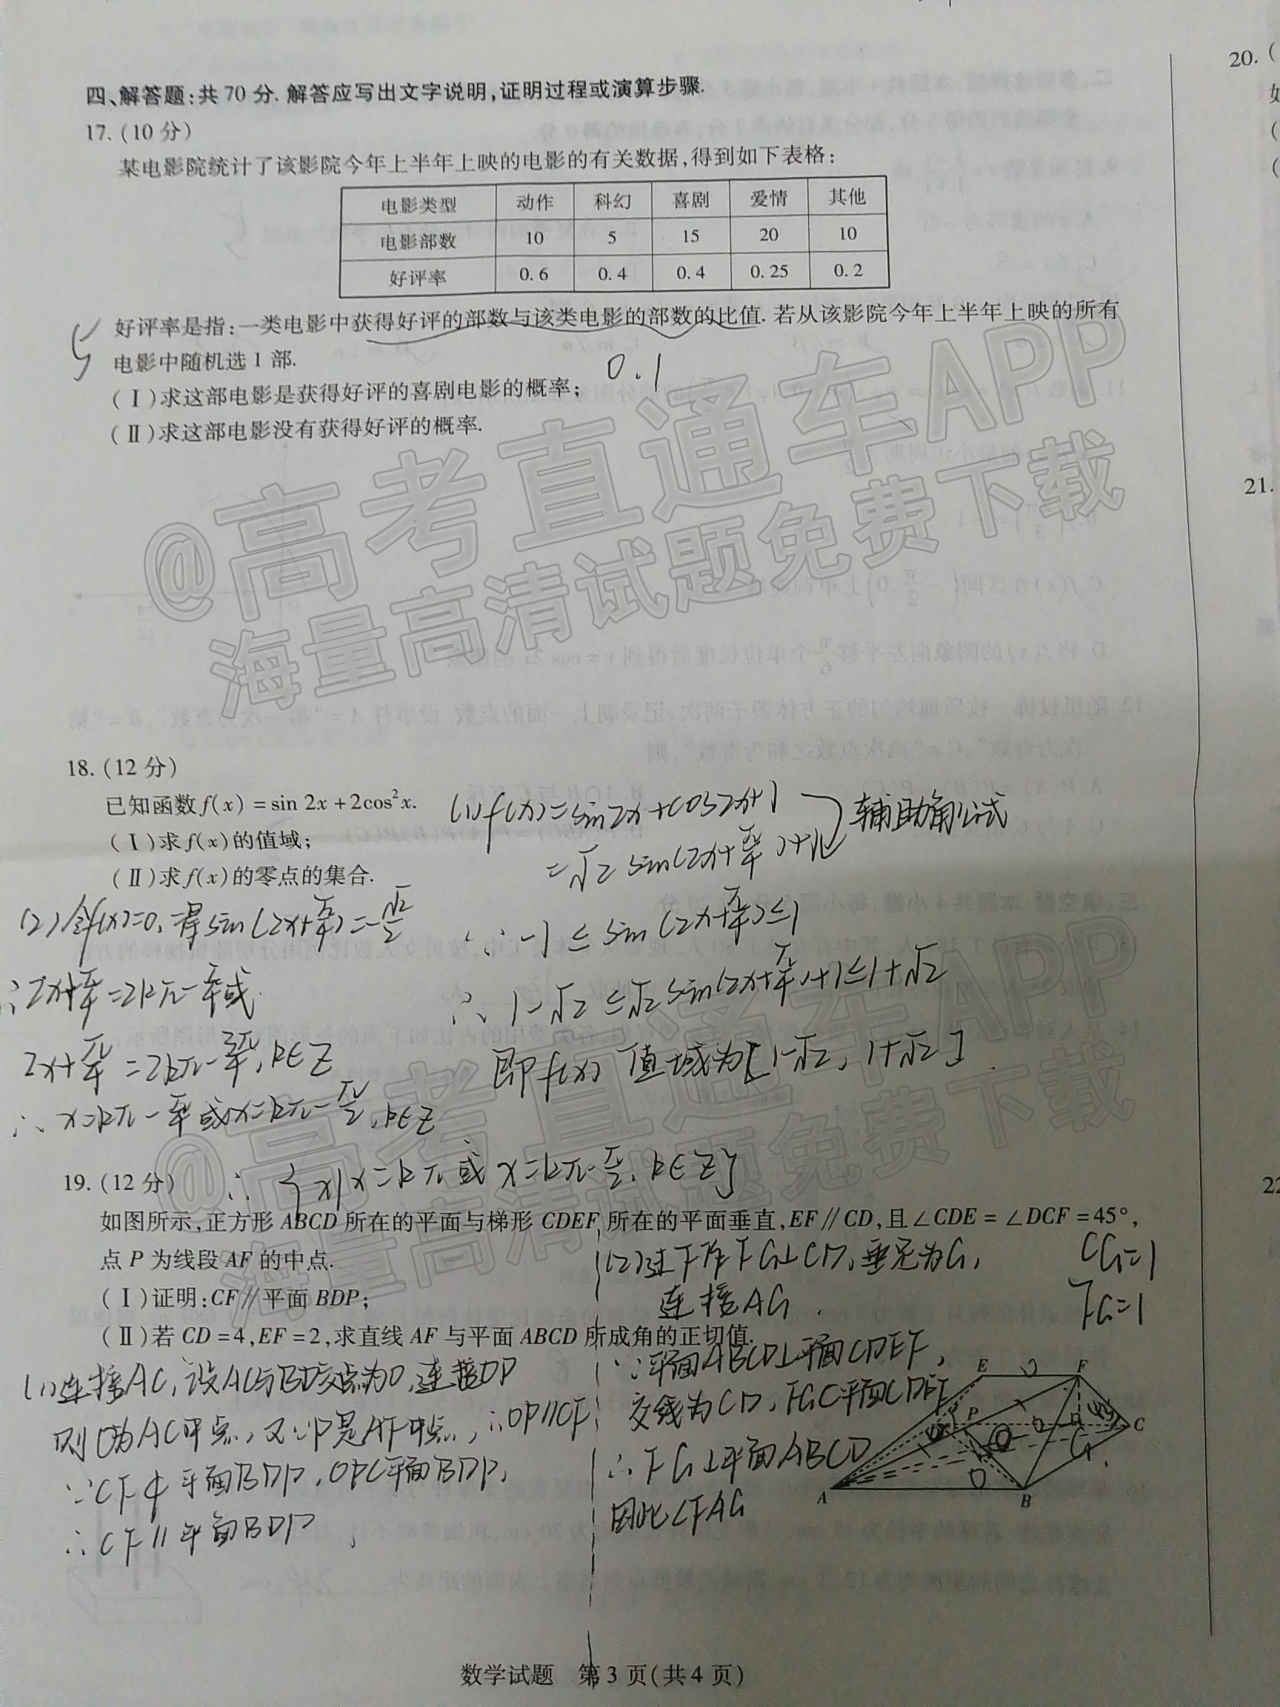 四、解答题:共70分. 解答应写出文字说明,证明过程或演算步骤.
17.(10分)
某电影院统计了该影院今年上半年上映的电影的有关数据,得到如下表格:
电影类型 动作 科幻 喜剧 爱情 其他
电影部数 10 5 15 20 10
好评率 0.6 0.4 0.4 0.25 0.2
好评率是指:一类电影中获得好评的部数与该类电影的部数的比值. 若从该影院今年上半年上映的所有
电影中随机选1部.
0.1
(Ⅰ)求这部电影是获得好评的喜剧电影的概率;
(Ⅱ)求这部电影没有获得好评的概率.
@高考直通车APP
海量高清试题免费下载
18.(12分)
已知函数f(x)=sin 2x+2cos²x.
(Ⅰ)求f(x)的值域;
(Ⅱ)求f(x)的零点的集合.
(1)f(x)=sin2x+cos2x+1
=√2 sin(2x+π/4)+1
辅助角公式
∵ -1≤sin(2x+π/4)≤1
∴ 1-√2≤√2sin(2x+π/4)+1≤1+√2
即f(x)值域为[1-√2, 1+√2].
(2)令f(x)=0,得sin(2x+π/4)=-√2/2
∴2x+π/4=2kπ-π/4或
2x+π/4=2kπ-3π/4,k∈Z
∴x=kπ-π/4或x=kπ-π/2,k∈Z
@高考直通车APP
海量高清试题免费下载
19.(12分)
如图所示,正方形ABCD所在的平面与梯形CDEF所在的平面垂直,EF∥CD,且∠CDE=∠DCF=45°,
点P为线段AF的中点.
(Ⅰ)证明:CF∥平面BDP;
(Ⅱ)若CD=4,EF=2,求直线AF与平面ABCD所成角的正切值.
(1)连接AC,设AC与BD交点为O,连接OP
则O为AC中点,又∵P是AF中点,∴OP∥CF
∵CF⊄平面BDP,OP⊂平面BDP,
∴CF∥平面BDP
(2)过F作FG⊥CD,垂足为G,
连接AG.
CG=1
FG=1
∵平面ABCD⊥平面CDEF,
交线为CD,FG⊂平面CDEF
∴FG⊥平面ABCD
E F P C G O A B
数学试题 第3页(共4页)
20.(
21.